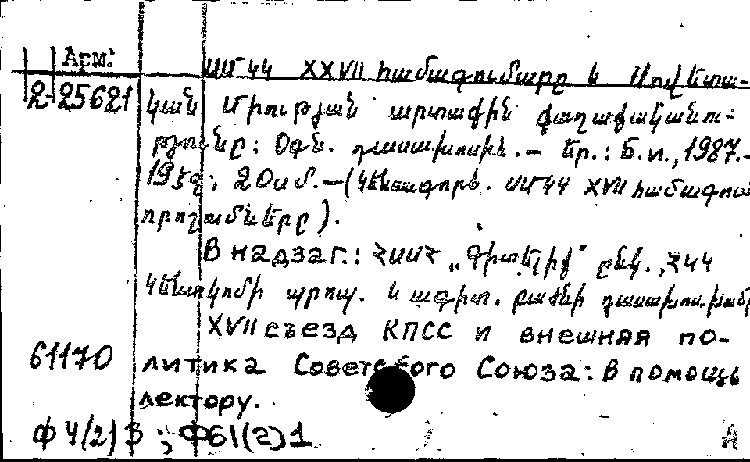 Арм.
ՍՄԿԿ XXVII համագումարը և Սովետա-
2-25621 կան Միության արտաքին քաղաքականու-
թյունը: Օգն. դասախոսին. - Եր.: Б.и., 1987.-
19 էջ; 20 սմ. - (Կենսագործ. ՍՄԿԿ XVII համագում
որոշումները).
В надзаг.: ՀՍՍՀ „Գիտելիք“ ընկ., ՀԿԿ
Կենտկոմի պրոպ. և ագիտ. բաժնի դասախոս. խումբ
XVII съезд КПСС и внешняя по-
61170 литика Советского Союза: В помощь
лектору.
Ф 4(2)3; Ф61(2)1 А